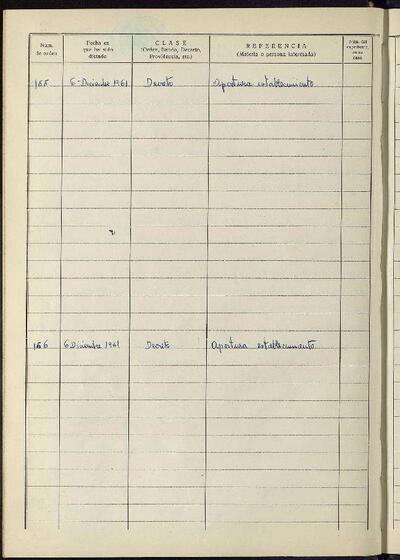 Núm. de orden
Fecha en que ha sido dictado
CLASE
(Orden, Bando, Decreto, Providencia, etc.)
REFERENCIA
(Materia o persona interesada)
Núm. del expediente, en su caso
6-Diciembre 1961 Decreto Apertura establecimiento
166 6 Diciembre 1961 Decreto Apertura establecimiento